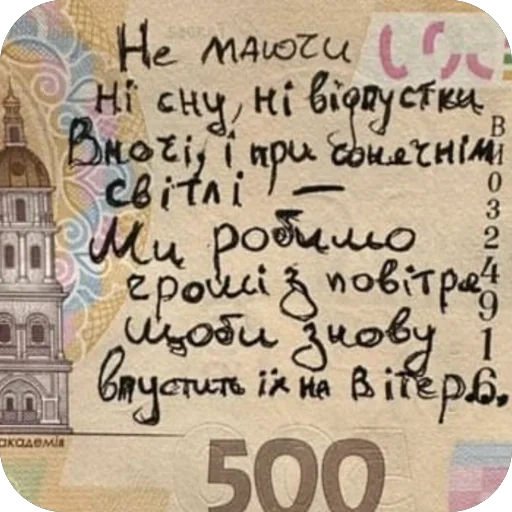 Не маючи
Ні сну, ні відпустки
Вночі, і при сонечнім
світлі —
Ми робимо
гроші з повітря
щоби знову
впустить їх на вітер.
ВИ0324916
академія
500